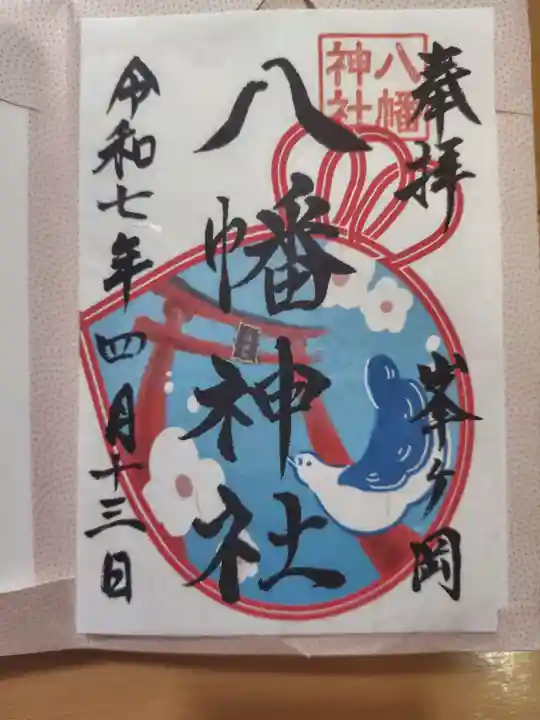 奉拝
峯ヶ岡
八幡神社
八幡
神社
令和七年四月十三日